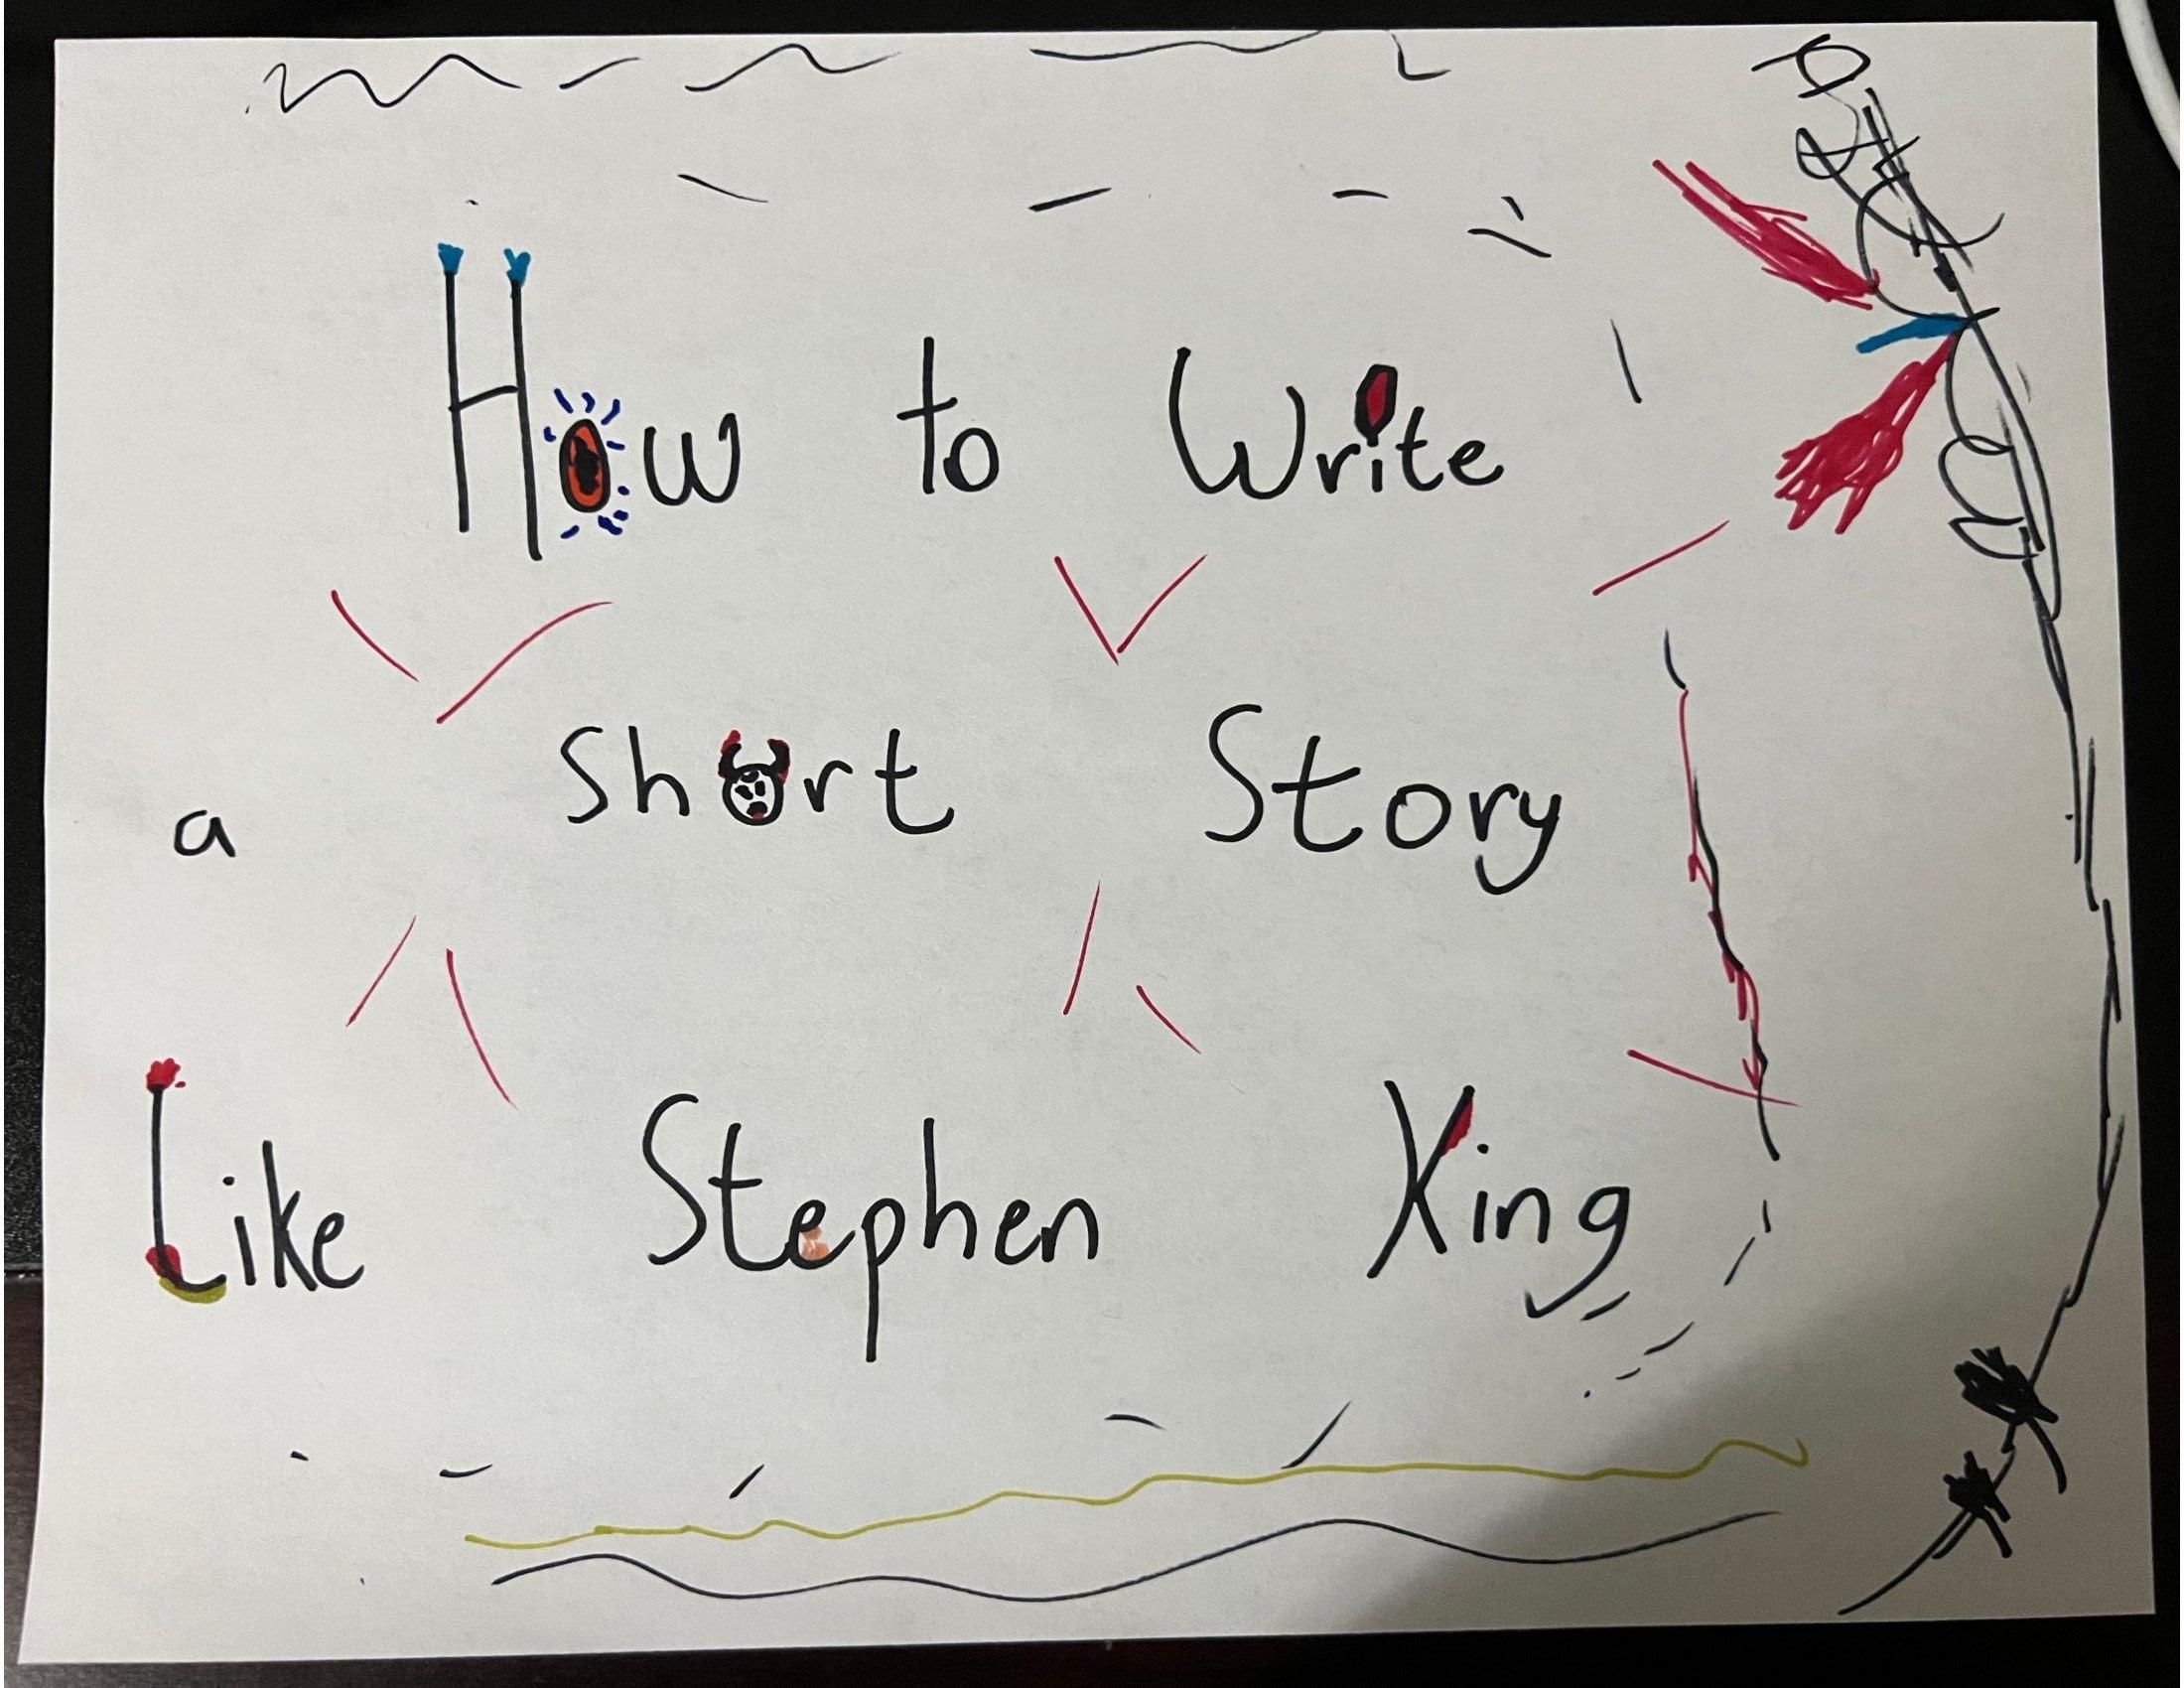 How to Write
a Short Story
Like Stephen King